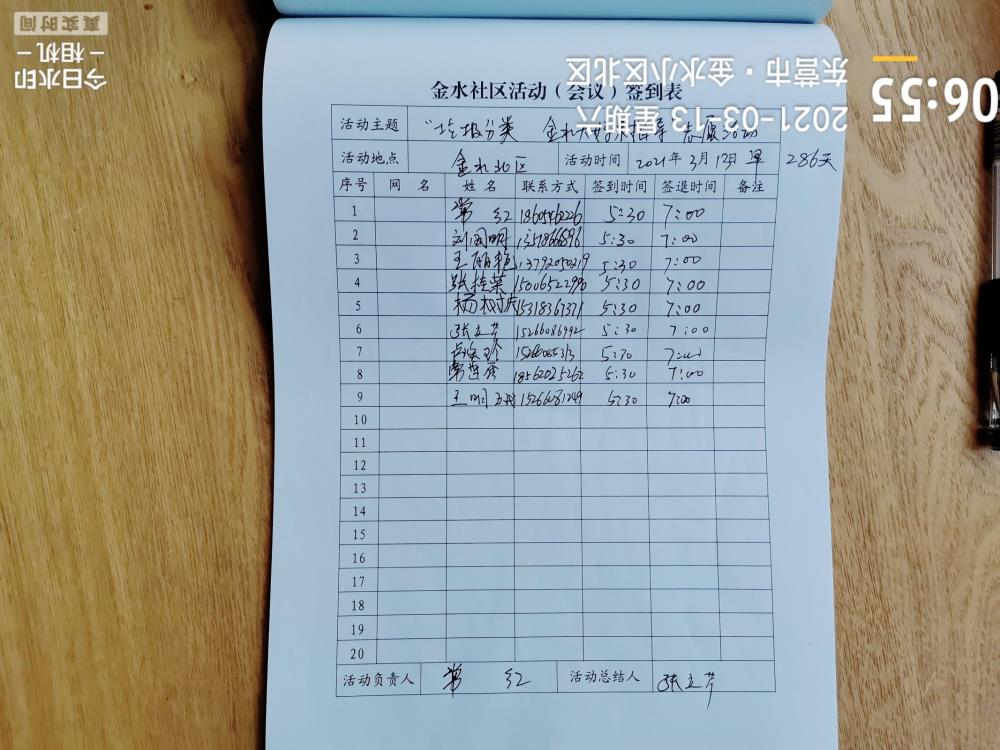 金水社区活动（会议）签到表
活动主题 "垃圾分类 志愿活动
活动地点 金水北区 活动时间 2021年3月13日 早 286天
序号 网 名 姓 名 联系方式 签到时间 签退时间 备注
1 常 红 5:30 7:00
2 刘国明 5:30 7:00
3 王丽艳 13792050219 5:30 7:00
4 张桂荣 15006522990 5:30 7:00
5 杨树庆 15318367371 5:30 7:00
6 张立芹 15266086992 5:30 7:00
7 5:30 7:00
8 常莲秀 18562025262 5:30 7:00
9 王明 15266081249 5:30 7:00
10
11
12
13
14
15
16
17
18
19
20
活动负责人 常 红 活动总结人 张立芹
06:55
2021-03-13 星期六
东营市·金水小区北区
今日水印
－相机－
真实时间